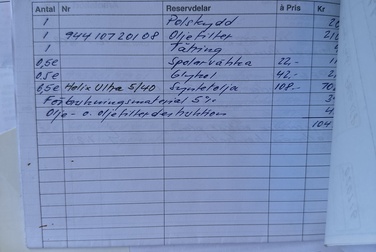 Antal Nr Reservdelar à Pris Kr
1 Polskydd
1 94410720108 Oljefilter 210
1 Tätring
0,5e Spolarvätska 22,-
0,5e Glykol 42,-
6,5e Helix Ultra 5/40 Syntetolja 108,- 70
Förbrukningsmaterial 5%
Olje- o. oljefilterdestruktion
104